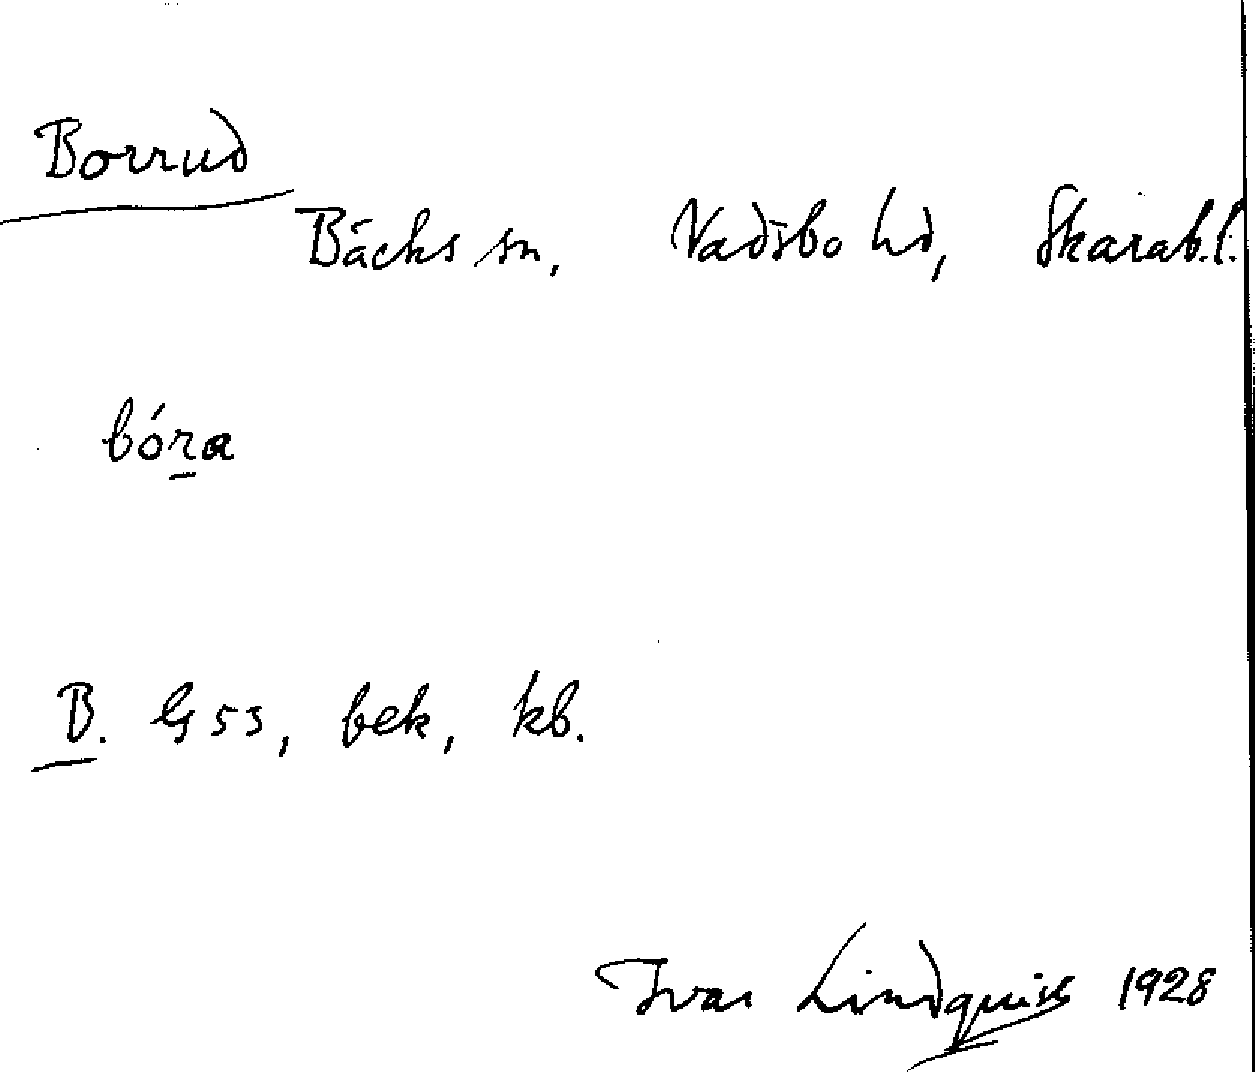 Borrud
Bäcks sn, Vadsbo hd, Skarab.l.
bóra
B. G 53, bek, kb.
Ivar Lindquist 1928